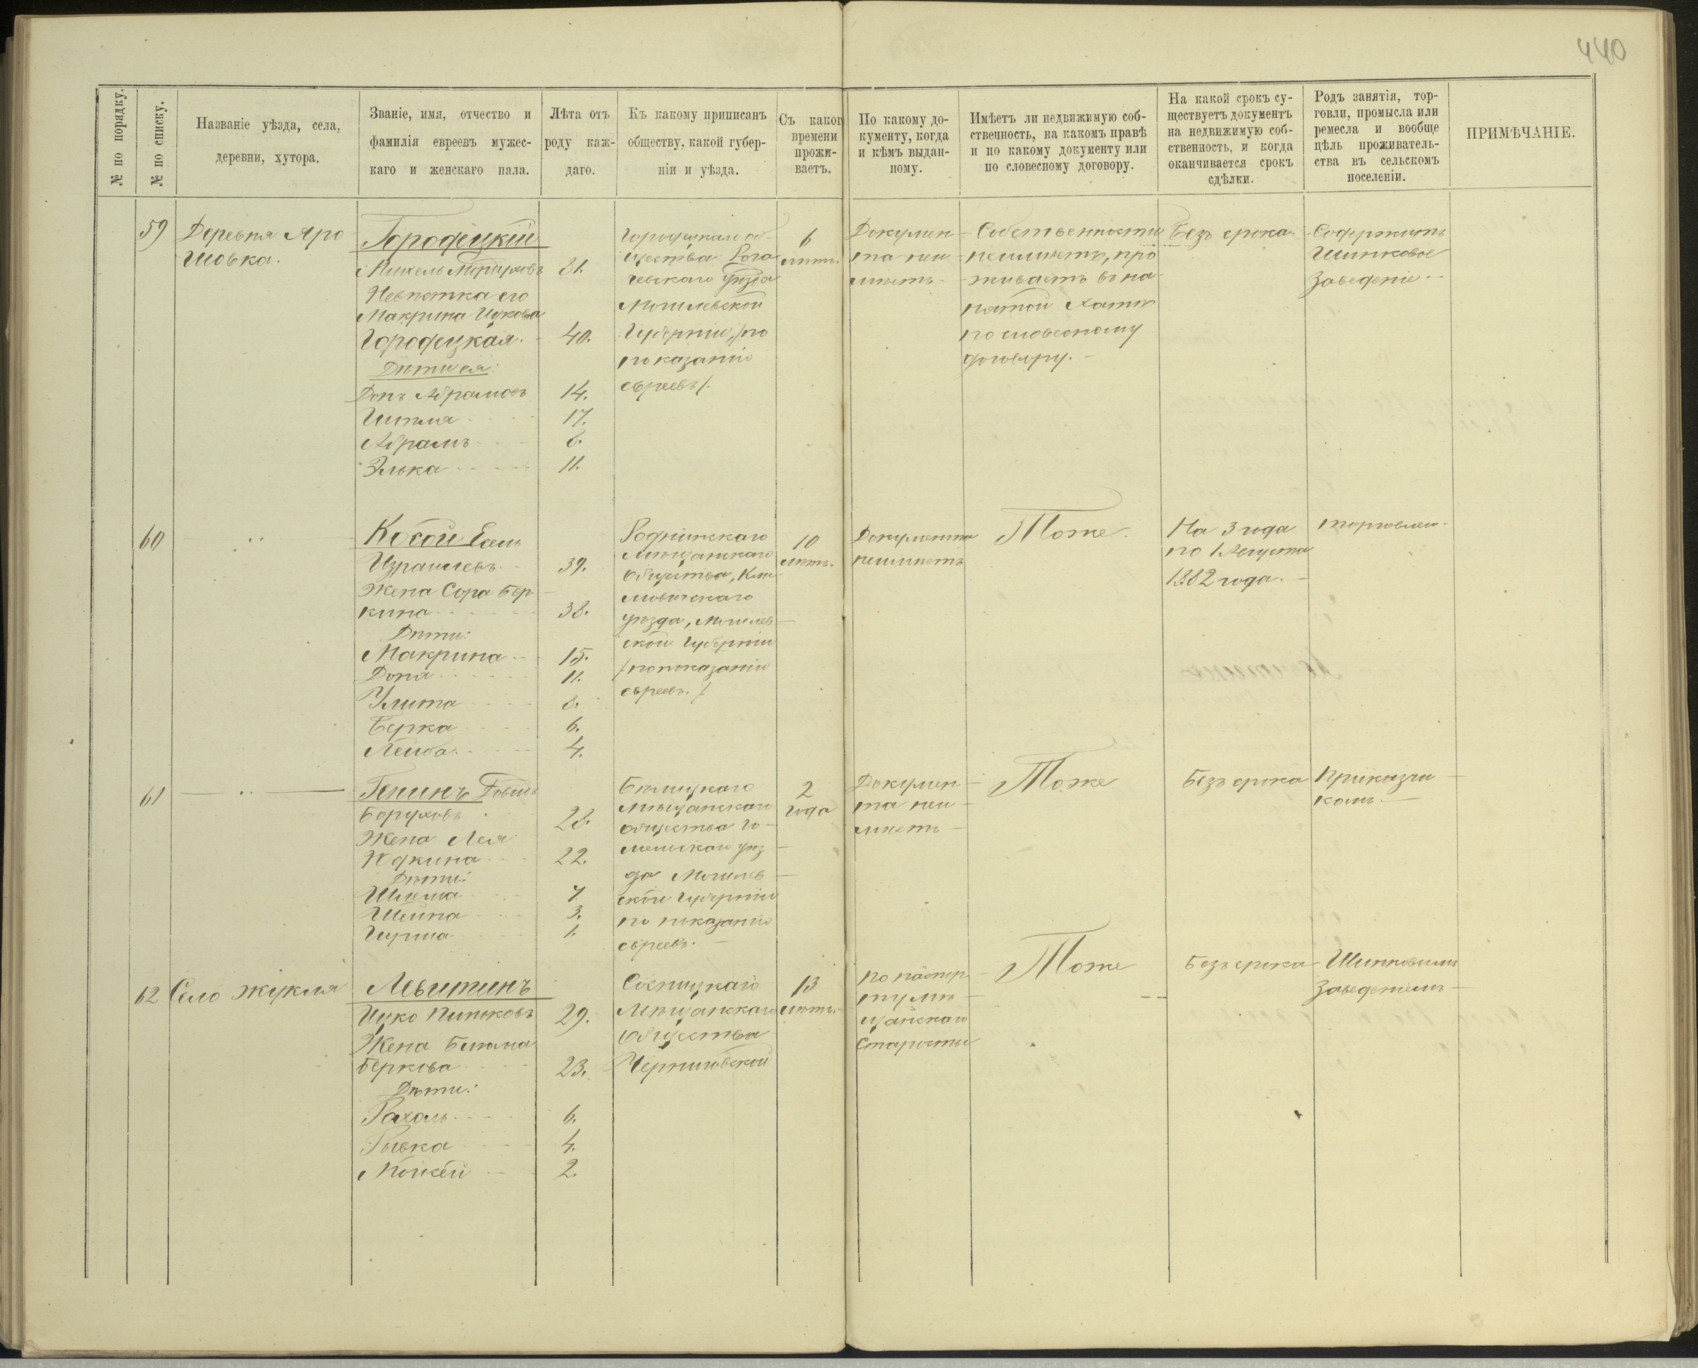 440
№ по порядку.
№ по списку.
Названіе уѣзда, села,
деревни, хутора.
Званіе, имя, отчество и
фамилія евреевъ мужес-
каго и женскаго пала.
Лѣта отъ
роду каж-
даго.
Къ какому приписанъ
обществу, какой губер-
ніи и уѣзда.
Съ каког
времени
прожи-
ваетъ.
По какому до-
кументу, когда
и кѣмъ выдан-
ному.
Имѣетъ ли недвижимую соб-
ственность, на какомъ правѣ
и по какому документу или
по словесному договору.
На какой срокъ су-
ществуетъ документъ
на недвижимую соб-
ственность, и когда
оканчивается срокъ
сдѣлки.
Родъ занятія, тор-
говли, промысла или
ремесла и вообще
цѣль проживатель-
ства въ сельскомъ
поселеніи.
ПРИМѢЧАНІЕ.
59
Деревня Яро
шовка.
Городецкій
31.
Невѣстка его
Макрина Ицкова
Городецкая. 40.
Дѣти ея:
Абрамовъ 14.
17.
Абрамъ 8.
Элька 11.
общества Рога
чевскаго уѣзда
Могилевской
Губерніи, /по
показанію
евреевъ/.
6
лѣтъ.
Докумен-
та неи-
мѣетъ.
Собственности
неимѣетъ, про
живаетъ въ на
нятой хатѣ
по словесному
договору.
Безъ срока
Содержитъ
Шинковое
Заведеніе.
60
Косой
Израилевъ 39.
Жена Сора Бер
кина 38.
Дѣти:
Макрина 15.
Дона 11.
Улита 8.
Берка 6.
Лейба 4.
Роднинскаго
Мѣщанскаго
общества, Кли
мовичскаго
уѣзда, Могилев
ской Губерніи
/по показанію
евреевъ./
10
лѣтъ.
Документа
неимѣетъ
Тоже.
На 3 года
по 1 Августа
1882 года.
торговлею.
61
Генинъ
Боруховъ 28.
Жена Лея
Юдкина 22.
Дѣти:
Шлема 7
3.
1.
Бѣлицкаго
Мѣщанскаго
общества Го-
мельскаго уѣз
да Могилев
ской Губерніи
по показанію
евреевъ.
2
года
Докумен-
та неи-
мѣетъ
Тоже
Безъ срока
Прикащи
комъ.
62
Село Жукля
Левитинъ
Ицко 29.
Жена
Беркова 23.
Дѣти:
Рахаль 6.
Рывка 4.
2.
Сосницкаго
Мѣщанскаго
общества
Черниговской
13
лѣтъ.
по паспор-
ту мѣ-
щанскаго
Старосты
Тоже
Безъ срока
Шинковымъ
Заведеніемъ